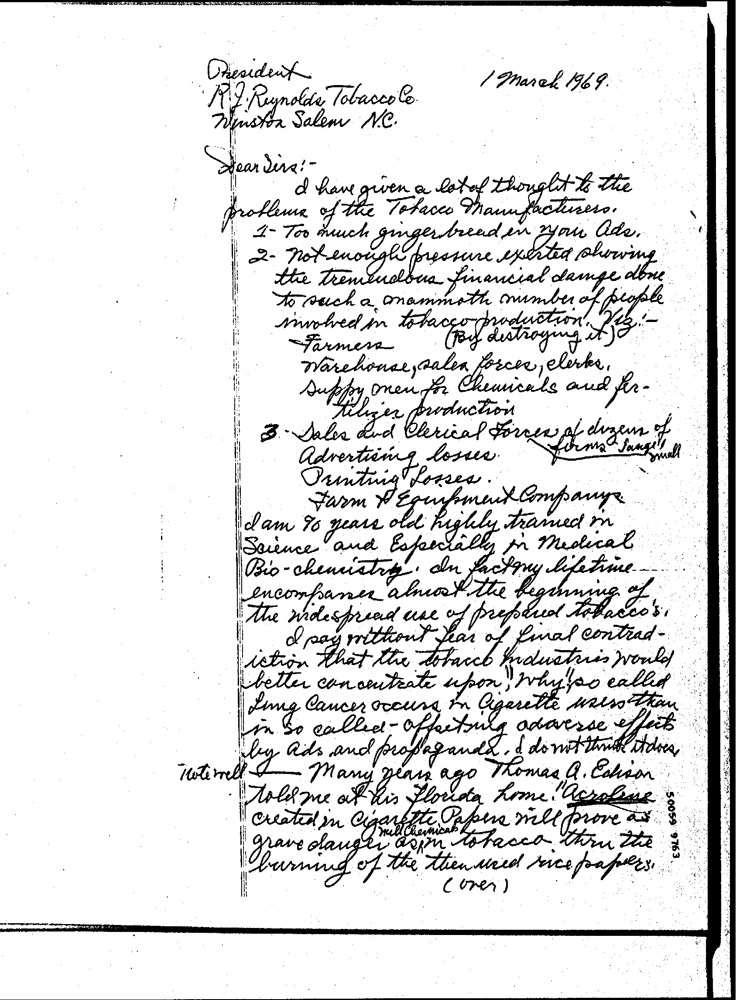 President
R. J. Reynolds Tobacco Co.
Winston Salem N.C.
1 March 1969.
Dear Sirs:-
I have given a lot of thought to the
problems of the Tobacco Manufacturers.
1- Too much gingerbread in your Ads.
2- Not enough pressure exerted showing
the tremendous financial damge done
to such a mammoth number of people
involved in tobacco production, Viz:-
(By destroying it)
Farmers
Warehouse, sales forces, clerks,
Suppy men for Chemicals and fer-
tilizer production
3- Sales and Clerical Forces of dozens of
firms large & small
Advertising losses.
Printing Losses.
Farm & Equipment Companys
I am 70 years old highly trained in
Science and Especially in Medical
Bio-chemistry. In fact my lifetime
encompasses almost the beginning of
the widespread use of prepared tobacco's.
I say without fear of final contrad-
iction that the tobacco industries would
better concentrate upon, "Why" so called
Lung Cancer occurs in Cigarette users than
in so called-offsetting adverse effects
by ads and propaganda. I do not think it does,
Note well — Many years ago Thomas A. Edison
told me at his Florida home. "Acroleine
created in Cigarette Papers will prove as
grave danger as in tobacco thru the
will Chemicals
burning of the then used rice papers.
(over)
50059 9763